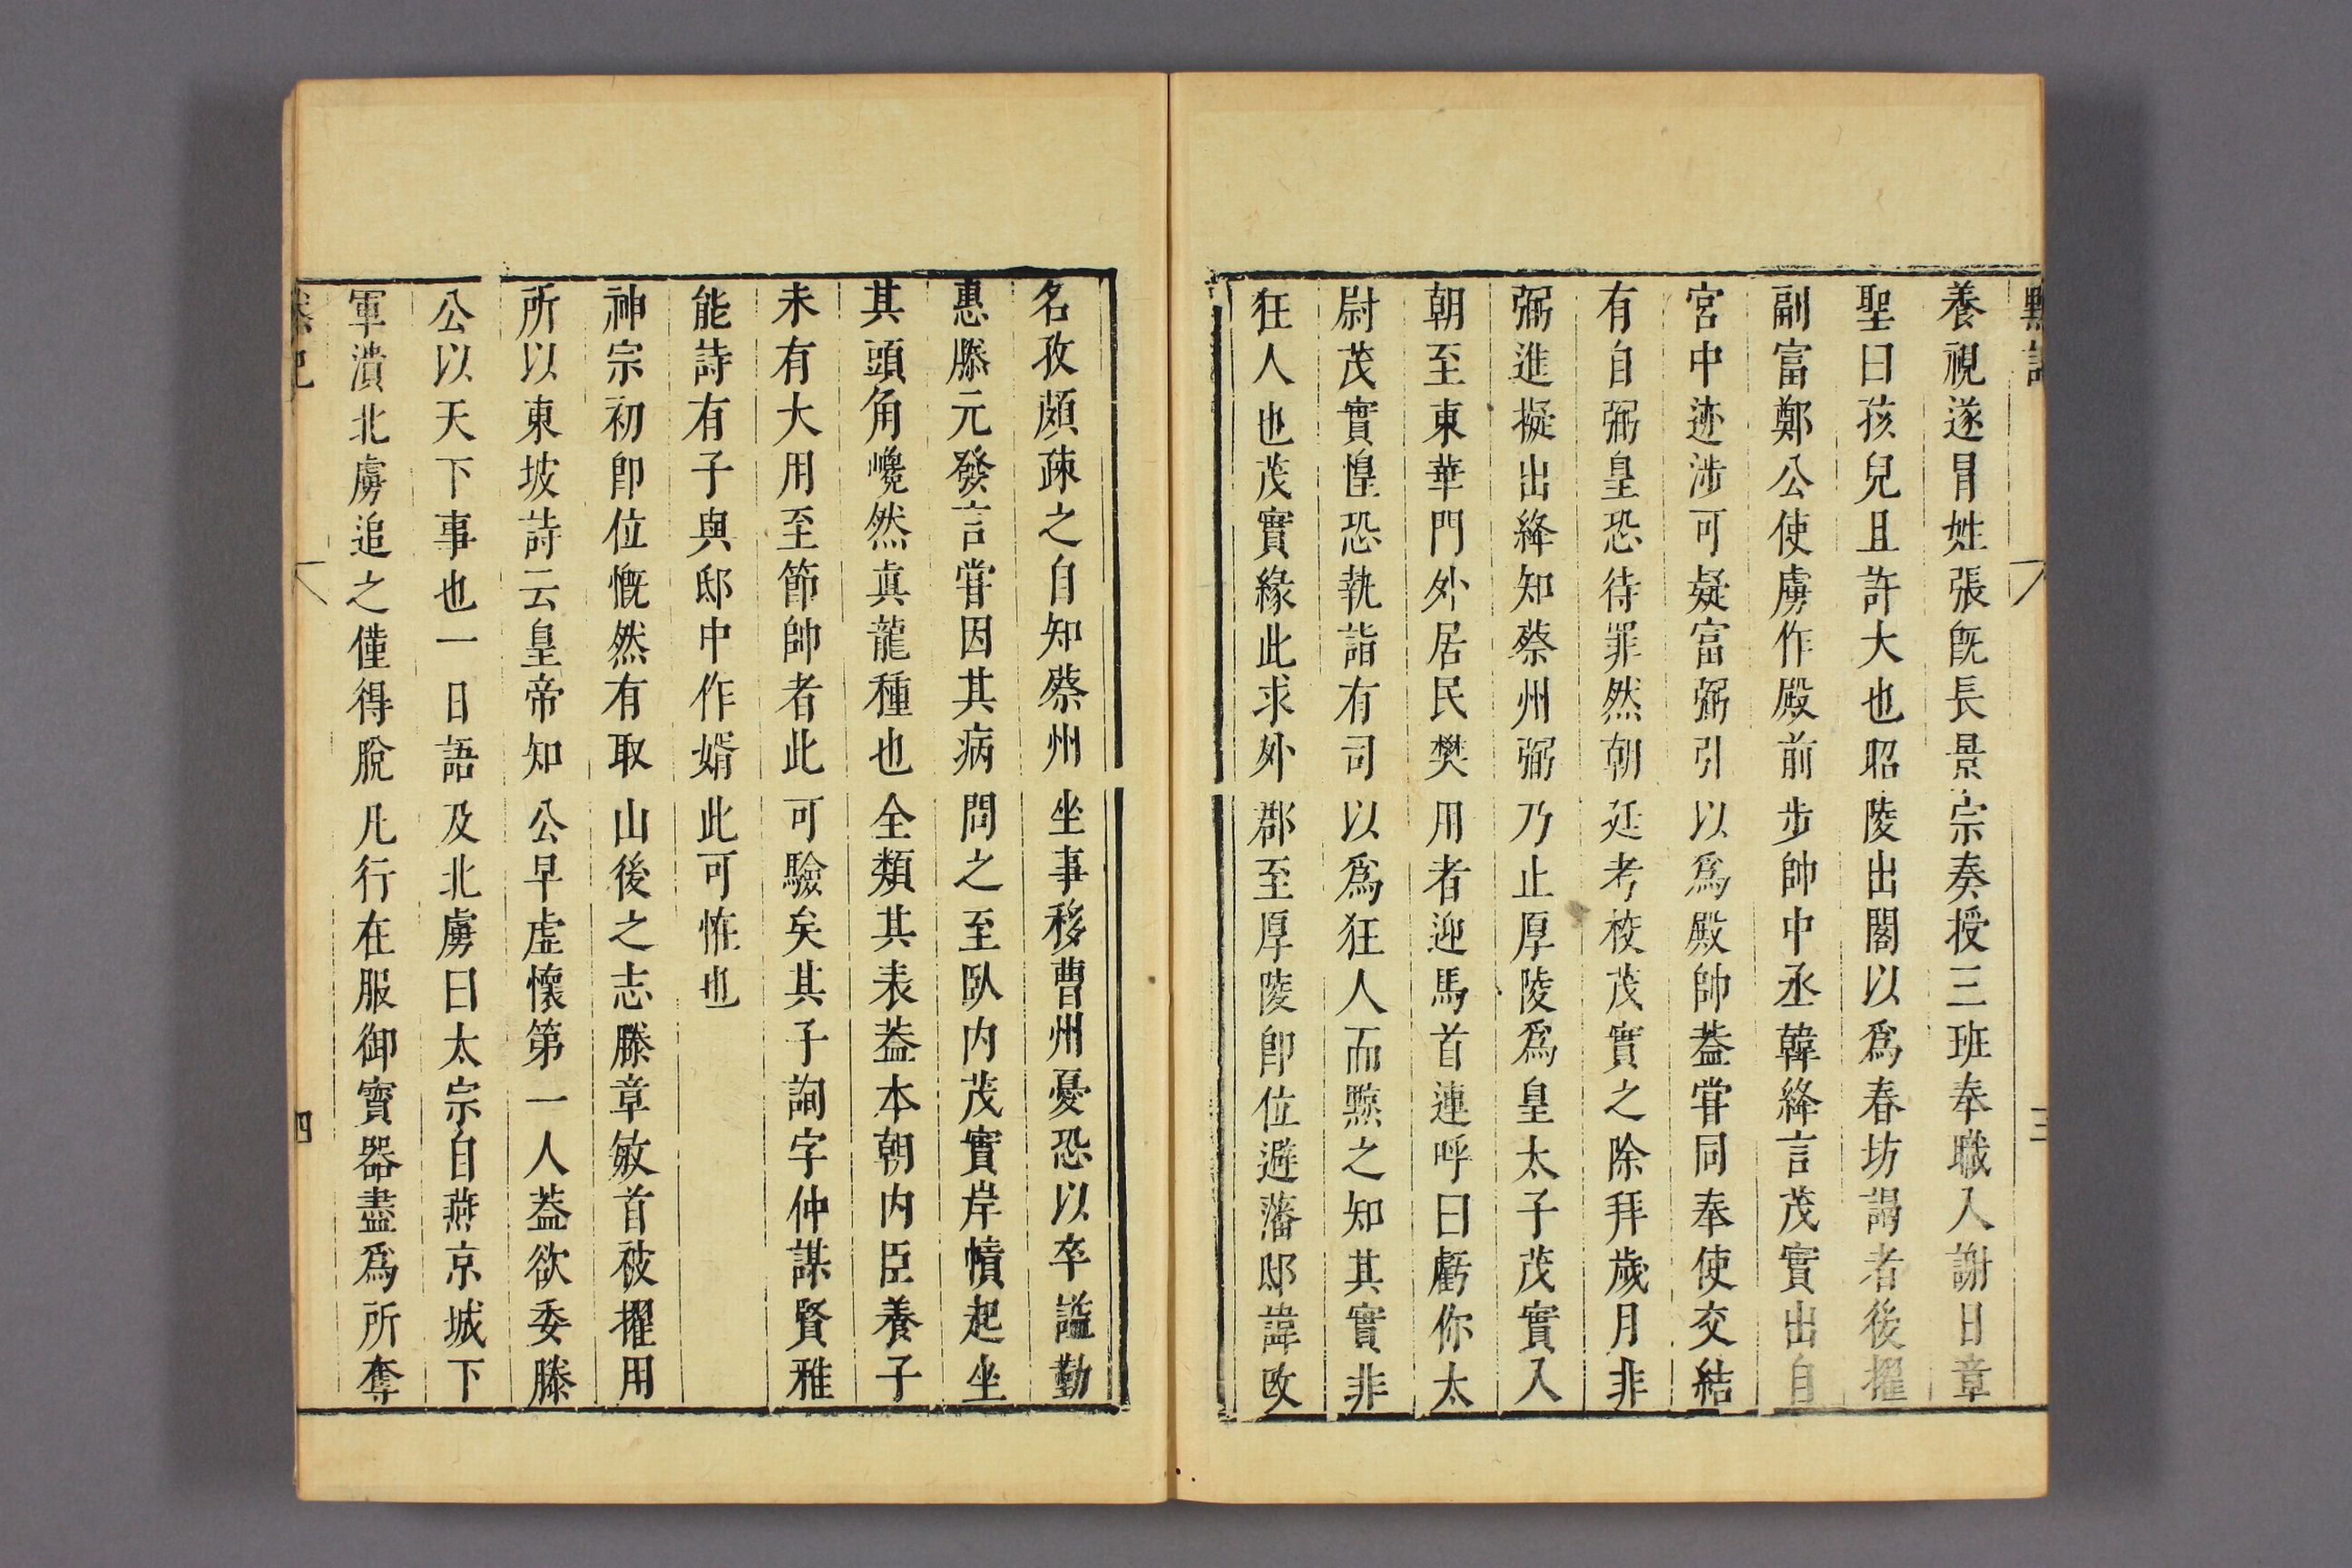 默記
三
養視遂冒姓張旣長景宗奏授三班奉職入謝日章
聖曰孩兒且許大也昭陵出閤以爲春坊謁者後擢
副富鄭公使虜作殿前步帥中丞韓絳言茂實出自
宮中迹涉可疑富弼引以爲殿帥蓋嘗同奉使交結
有自弼皇恐待罪然朝廷考校茂實之除拜歲月非
弼進擬出絳知蔡州弼乃止厚陵爲皇太子茂實入
朝至東華門外居民樊用者迎馬首連呼曰虧你太
尉茂實惶恐執詣有司以爲狂人而黥之知其實非
狂人也茂實緣此求外郡至厚陵卽位避藩邸諱改
名孜頗疎之自知蔡州坐事移曹州憂恐以卒謚勤
惠滕元發言嘗因其病問之至臥內茂實岸幘起坐
其頭角巉然眞龍種也全類其表蓋本朝內臣養子
未有大用至節帥者此可驗矣其子詢字仲謀賢雅
能詩有子與邸中作婿此可恠也
神宗初卽位慨然有取山後之志滕章敏首被擢用
所以東坡詩云皇帝知公早虛懷第一人蓋欲委滕
公以天下事也一日語及北虜曰太宗自燕京城下
軍潰北虜追之僅得脫凡行在服御寶器盡爲所奪
四